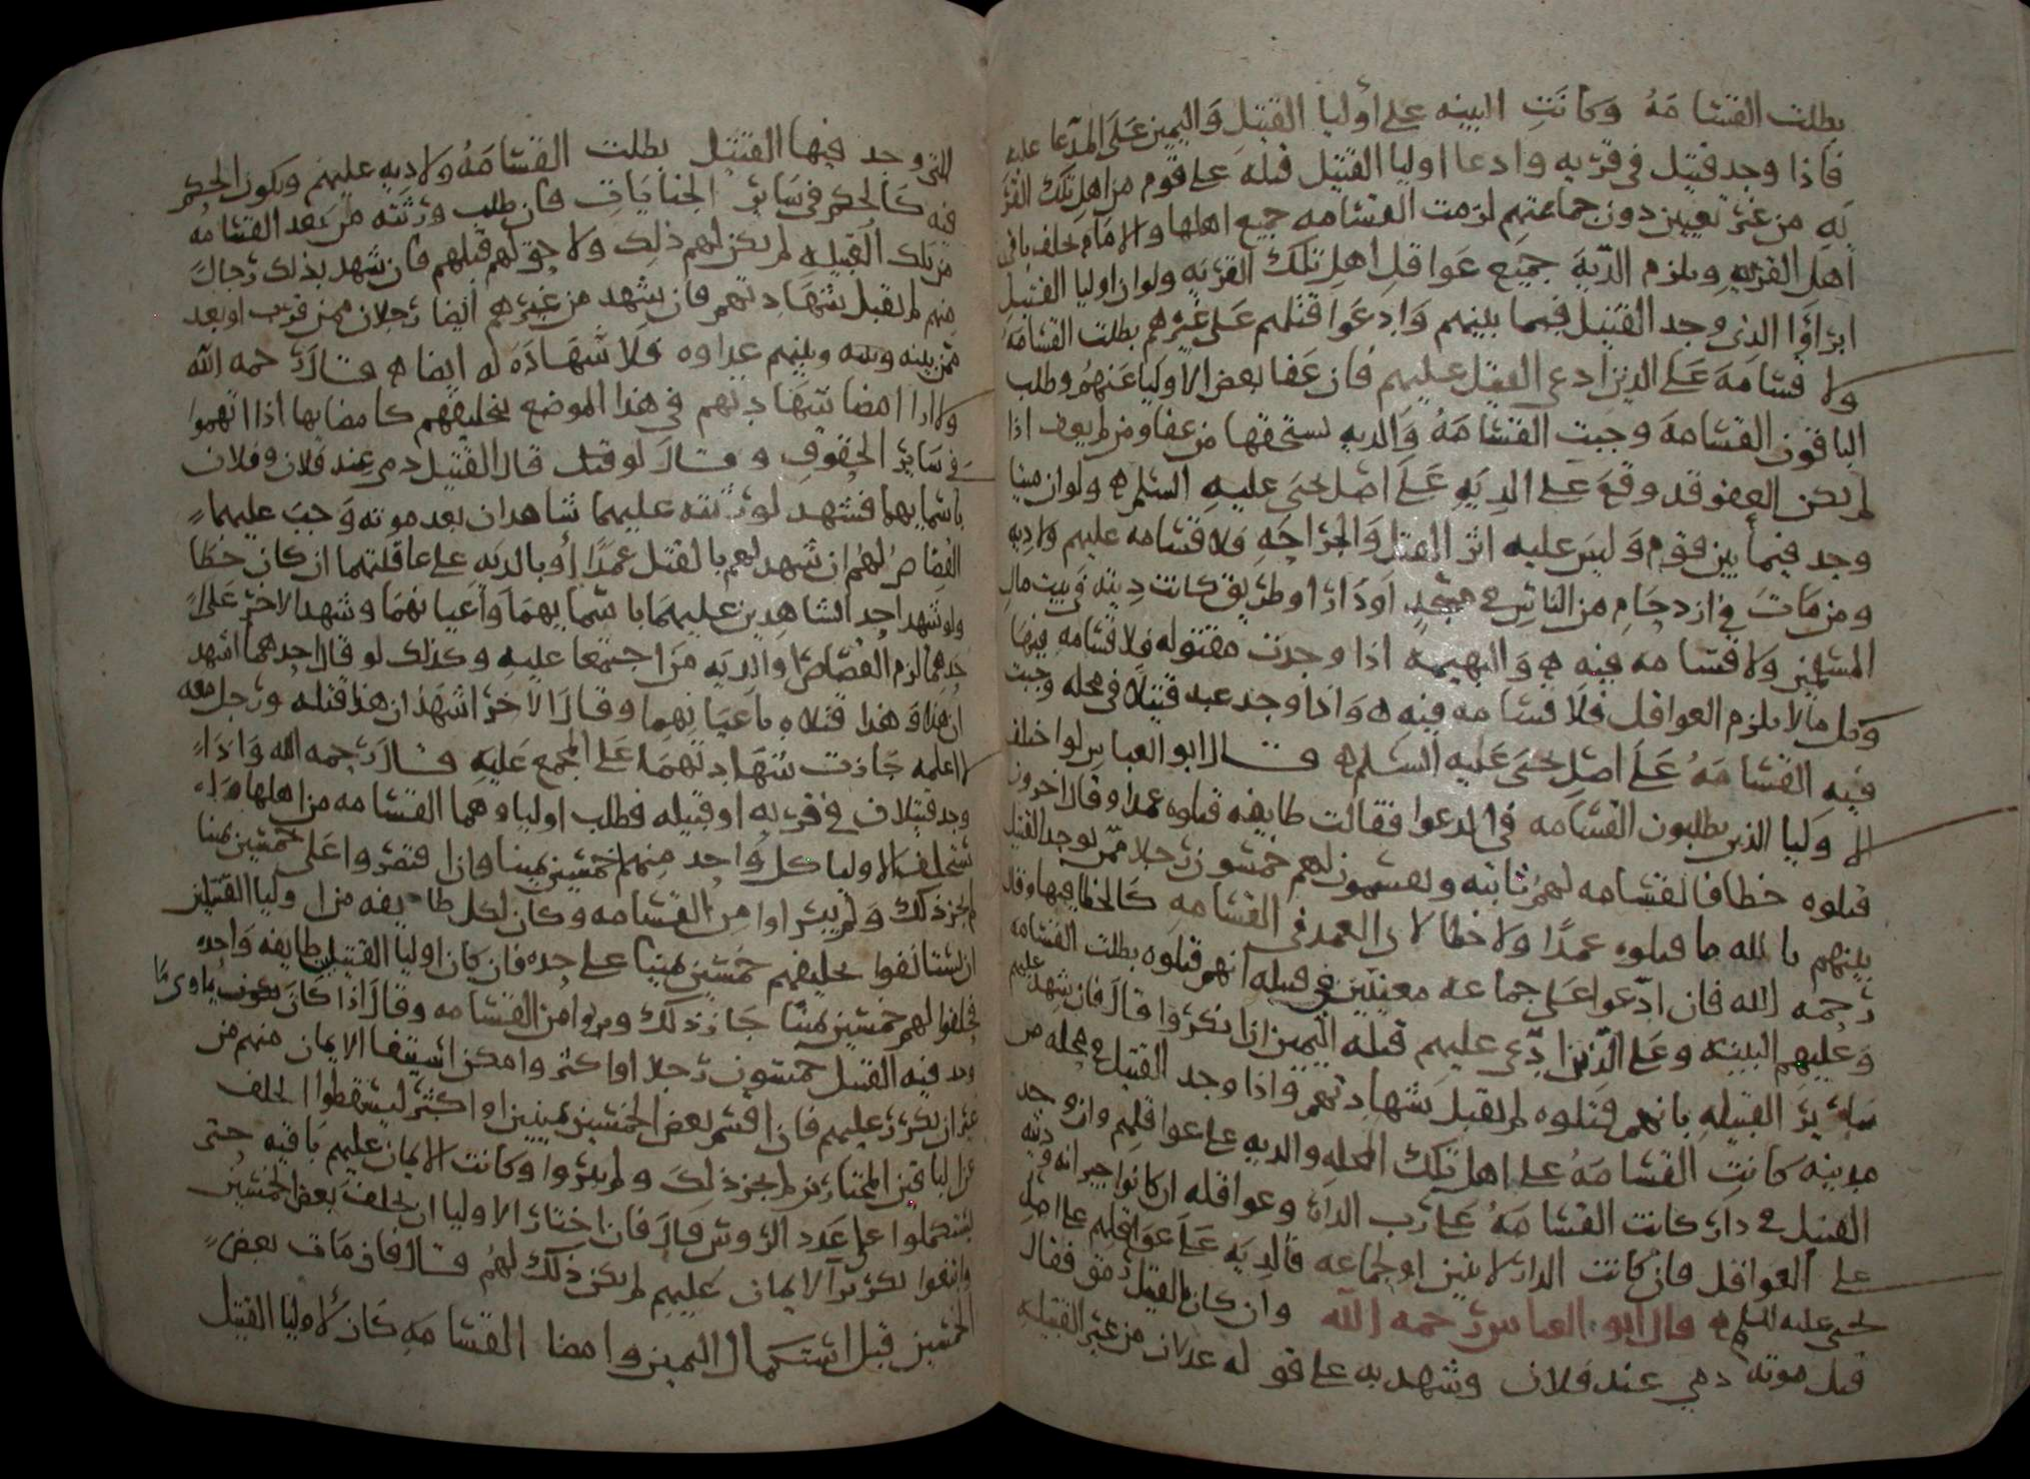 بطلت القسامه وكانت البينه على أوليا القتيل واليمين على المدعا عليه
فاذا وجد قتيل في قريه وادعا اوليا القتيل قتله على قوم من اهل تلك القر
يه من غير تعيين دون جماعتهم لزمت القسامه جميع اهلها والامام يحلف باقي
اهل القريه ويلزم الديه جميع عواقل اهل تلك القريه ولو ان اوليا القتيل
ابراوا الذي وجد القتيل فيما بينهم وادعوا قتلهم على غيرهم بطلت القسامه
ولا قسامه على الذين ادعى القتل عليهم فان عفا بعض الاوليا عنهم وطلب
الباقون القسامه وجبت القسامه والديه يستحقها من عفا ومن لم يعف اذا
لم يكن العفو قد وقع على الديه على اصل يحيى عليه السلم ولو ان ميتا
وجد فيما بين قوم وليس عليه اثر القتل والجراحه فلا قسامه عليهم ولا ديه
ومن مات في ازدحام من الناس في مسجد اودار او طريق كانت ديته في بيت مال
المسلمين ولا قسامه فيه والبهيمه اذا وجدت مقتوله فلا قسامه فيها
وكل ما لا يلزم العواقل فلا قسامه فيه واذا وجد عبد قتيلا في محله وجبت
فيه القسامه على اصل يحيى عليه السلم قال ابو العباس لو اختلف
الاوليا الذين يطلبون القسامه في الدعوا فقالت طايفه قتلوه عمدا وقال اخرون
قتلوه خطا فالقسامه لهم ثابته ويقسمون لهم خمسون رجلا ممن يوجد القتيل
بينهم بالله ما قتلوه عمدا ولا خطا لان العمد في القسامه كالخطا فيها وقال
رحمه الله فان ادعوا على جماعه معينين في قبيله انهم قتلوه بطلت القسامه
وعليهم البينه وعلى الذين ادعي عليهم قتله اليمين اذا نكروا قال فان شهد عليهم
ساير القبيله بانهم قتلوه لم تقبل شهادتهم واذا وجد القتيل في محله من
مدينه كانت القسامه على اهل تلك المحله والديه على عواقلهم وان وجد
القتيل في دار كانت القسامه على رب الدار وعواقله ان كانوا جيرانه وديته
على العواقل فان كانت الدار لاثنين او لجماعه فالديه على عواقلهم على اصل
يحيى عليه السلم قال ابو العباس رحمه الله وان كان بالقتيل رمق فقال
قبل موته دمي عند فلان وشهد به على قوله عدلان من غير القبيله
التي وجد فيها القتيل بطلت القسامه ولا ديه عليهم ويكون الحكم
فيه كالحكم في ساير الجنايات فان طلب ورثته من بعد القسامه
من تلك القبيله لم يكن لهم ذلك ولا حق لهم قبلهم فان شهد بذلك رجال
منهم لم تقبل شهادتهم فان شهد من غيرهم ايضا رجلان ممن قرب او بعد
ممن بينه وبينهم عداوه فلا شهاده له ايضا قال رحمه الله
ولا ارا امضا شهادتهم في هذا الموضع بتحليفهم كامضايها اذا اتهموا
في ساير الحقوق وقال لو قتل قال القتيل دمي عند فلان وفلان
باسمايهما فشهد لورثته عليهما شاهدان بعد موته وجب عليهما
القصاص لهم ان شهد لهم بالقتل عمدا أو بالديه على عاقلتهما ان كان خطا
ولو شهد احد الشاهدين عليهما باسمايهما واعيانهما وشهد الاخر على
احدهما لزم القصاص او الديه من اجتمعا عليه وكذلك لو قال احدهما اشهد
ان هذا وهذا قتلاه باعيانهما وقال الاخر اشهد ان هذا قتله ورجل معه
لا اعلمه جازت شهادتهما على المجمع عليه قال رحمه الله واذا
وجد قتيلان في قريه او قبيله فطلب اولياوهما القسامه من اهلها
تستحلف الاوليا كل واحد منهم خمسين يمينا وان اقتصروا على خمسين يمينا
لم يجز ذلك ولم يبراوا من القسامه وكان لكل طايفه من اوليا القتيلين
ان يستانفوا تحليفهم خمسين يمينا على حده فان كان اوليا القتيلين طايفه واحده
فحلفوا لهم خمسين يمينا جاز ذلك وبروا من القسامه وقال اذا كان
وجد فيه القتيل خمسون رجلا او اكثر وامكن استيفا الايمان منهم من
غير ان يكرر عليهم فان اقسم بعض الخمسين يمينين او اكثر ليسقطوا الحلف
عن الباقين المختارين لم يجز ذلك ولم يبروا وكانت الايمان عليهم باقيه حتى
يستكملوا على عدد الروس قال فان اختار الاوليا ان يحلف بعض الخمسين
وابتغوا تكرير الايمان عليهم لم يكن ذلك لهم قال فان مات بعض
الخمسين قبل استكمال اليمين وامضا القسامه كان لاوليا القتيل